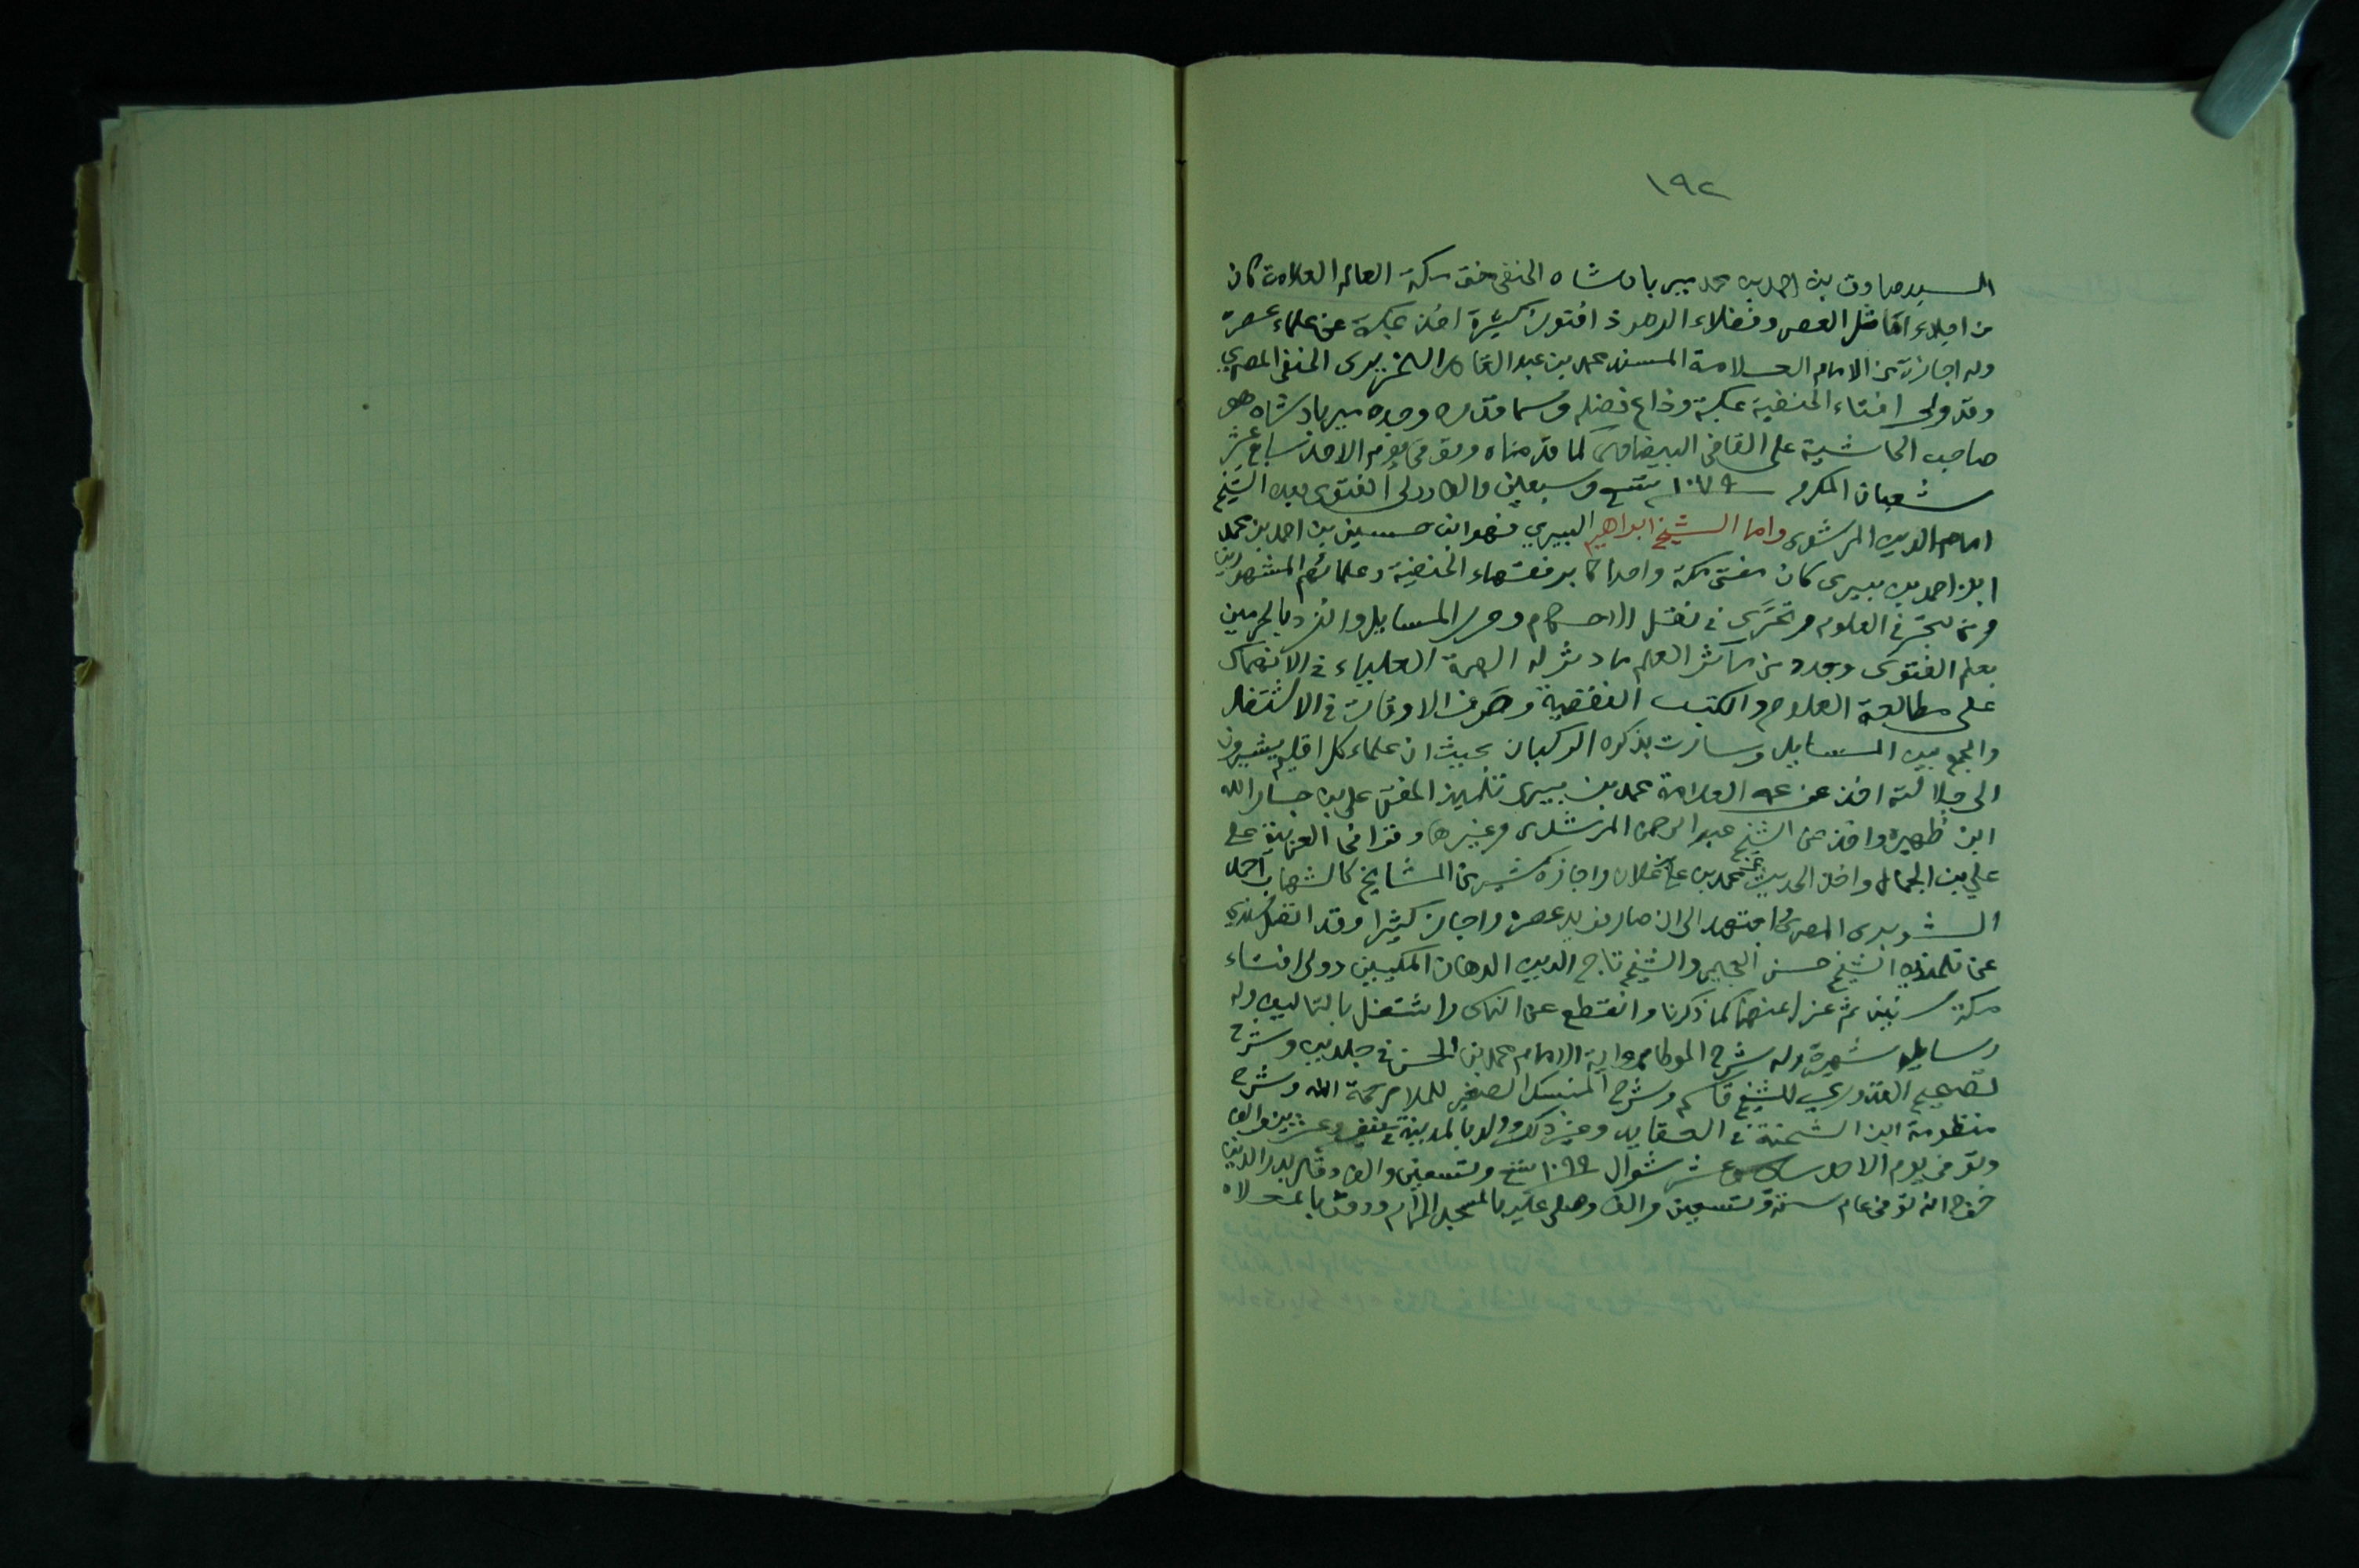 ١٩٢
السيد صادق بن احمد بن محمد مير بادشاه الحنفى مفتى مكة العالم العلامة كان
من اجلاء افاضل العصر وفضلاء الدهر ذا فتون كثيرة اخذ بمكة عن علماء عصره
وله اجازة من الامام العلامة المسند محمد بن عبد القادر النحريرى الحنفى المصري
وقد ولى افتاء الحنفية بمكة وذاع فضله وسما قدره وجده مير بادشاه هو
صاحب الحاشية على القاضى البيضاوى كما قدمناه وتوفى يوم الاحد سابع عشر
شعبان المكرم سنة ١٠٧٩ تسع وسبعين والف وولى الفتوى بعده الشيخ
امام الدين المرشدى واما الشيخ ابراهيم البيري فهو ابن حسين بن احمد بن محمد
ابن احمد بن بيرى كان مفتى مكة واحد اكابر فقهاء الحنفية وعلمائهم المشهورين
ومن تبحر في العلوم وتحرى في نقل الاحكام وحرر المسايل وانفرد بالحرمين
بعلم الفتوى وجدد من مآثر العلم ما دثر له الهمة العلياء في الانهماك
على مطالعة العلوم والكتب الفقهية وصرف الاوقات في الاشتغال
والجمع بين المسايل وسارت بذكره الركبان بحيث ان علماء كل اقليم يشيرون
الى جلالته اخذ عن عمه العلامة محمد بن بيرى تلميذ المفتى على بن جار الله
ابن ظهيرة واخذ عن الشيخ عبد الرحمن المرشدى وغيرها وقرأ فى العربية على
علي بن الجمال واخذ الحديث عن محمد بن علان واجازه كثير من المشايخ كالشهاب احمد
الشوبرى المصرى واجتهد الى ان صار فريد عصره واجاز كثيرا وقد اتصل سندي
عن تلمذيه الشيخ حسن العجيمى والشيخ تاج الدين الدهان المكيين وولى افتاء
مكة سنين ثم عزل عنها كما ذكرنا وانقطع عن الناس واشتغل بالتاليف وله
رسايل شهيرة وله شرح الموطا برواية الامام محمد بن الحسن في جلدين وشرح
تصحيح القدوري للشيخ قاسم وشرح المنسك الصغير للملا رحمة الله وشرح
منظومة ابن الشحنة في العقايد وغير ذلك وولد بالمدينة في نيف وعشرين والف
وتوفى يوم الاحد سادس عشر شوال سنة ١٠٩٩ تسع وتسعين والف وقال بدر الدين
خوج انه توفى عام ستة وتسعين والف وصلى عليه بالمسجد الحرام ودفن بالمعلاه